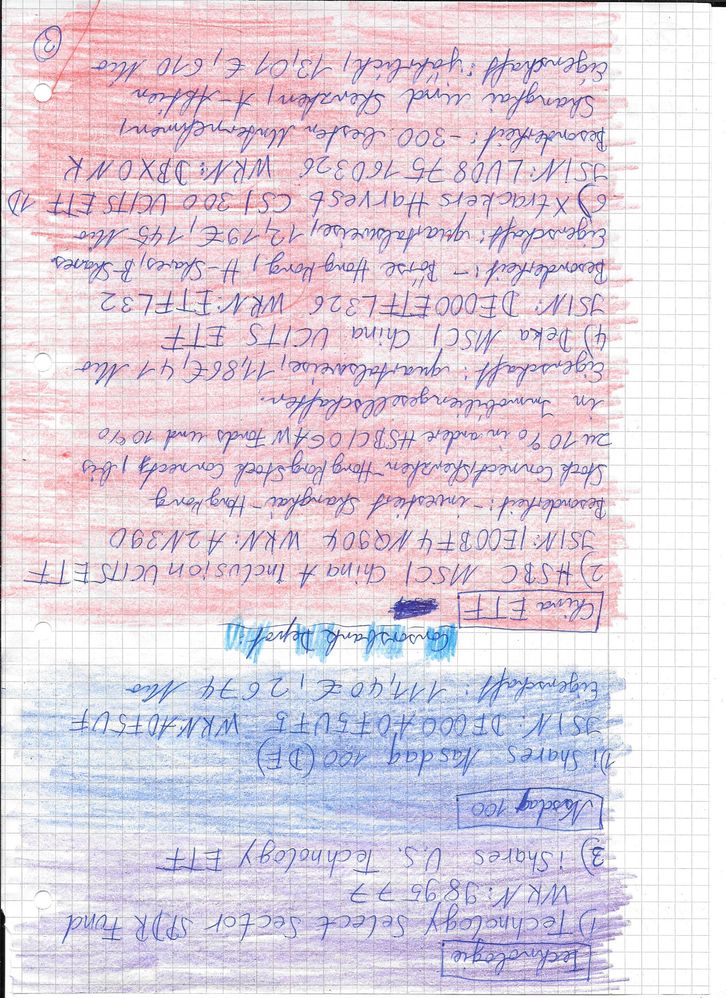 Technologie
1) Technology Select Sector SPDR Fund
WKN: 989577
3) iShares U.S. Technology ETF
Nasdaq 100
1) iShares Nasdaq 100 (DE)
JSIN: DE000A0F5UF5 WKN A0F5UF
Eigenschaft: 111,40 €, 2674 Mio
Consorsbank Depot:
China ETF
2) HSBC MSCI China A Inclusion UCITS ETF
JSIN: IE00BF4NQ904 WKN: A2N39D
Besonderheit: - investiert Shanghai-Hongkong
Stock Connect, Shenzhen-HongkongStock Connect, bis
zu 10% in andere HSBC/OGAW Fonds und 10%
in Immobiliengesellschaften.
Eigenschaft: quartalsweise, 11,86€, 41 Mio
4) Deka MSCI China UCITS ETF
JSIN: DE000ETFL326 WKN: ETFL32
Besonderheit: - Börse Hongkong, H-Shares, B-Shares
Eigenschaft: quartalsweise, 12,19€, 145 Mio
6) Xtrackers Harvest CSI 300 UCITS ETF 1D
JSIN: LU0875160326 WKN: DBX0NK
Besonderheit: -300 besten Unternehmen,
Shanghai und Shenzhen, A-Aktien
Eigenschaft: jährlich, 13,01 €, 610 Mio
3